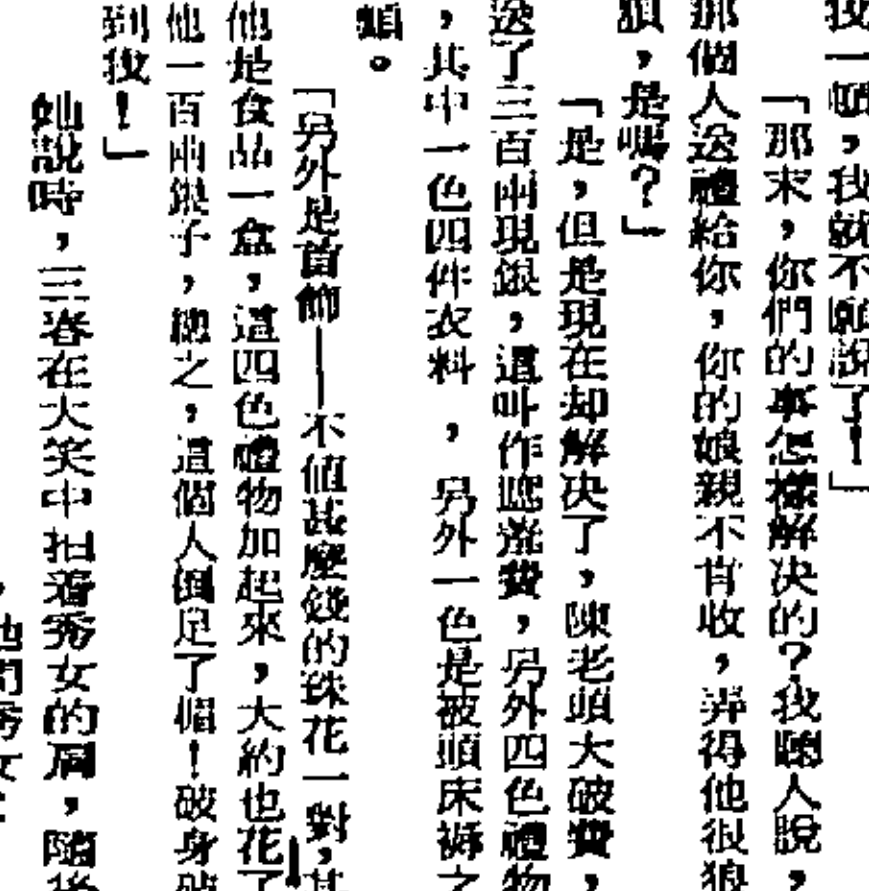 我一頓,我就不願說了!」
「那末,你們的事怎樣解决的?我聽人說,
那個人送禮給你,你的娘親不肯收,弄得他很狼
狽,是嗎?」
「是,但是現在却解决了,陳老頭大破費,
送了三百兩現銀,這叫作遮羞費,另外四色禮物
,其中一色四件衣料,另外一色是被頭床褥之
類。
「另外是首飾——不值甚麼錢的珠花一對,其
他是食品一盒,這四色禮物加起來,大約也花了
他一百兩銀子,總之,這個人倒足了楣!破身破
到我!」
她說時,三春在大笑中拍着秀女的肩,隨後
,他問秀女: